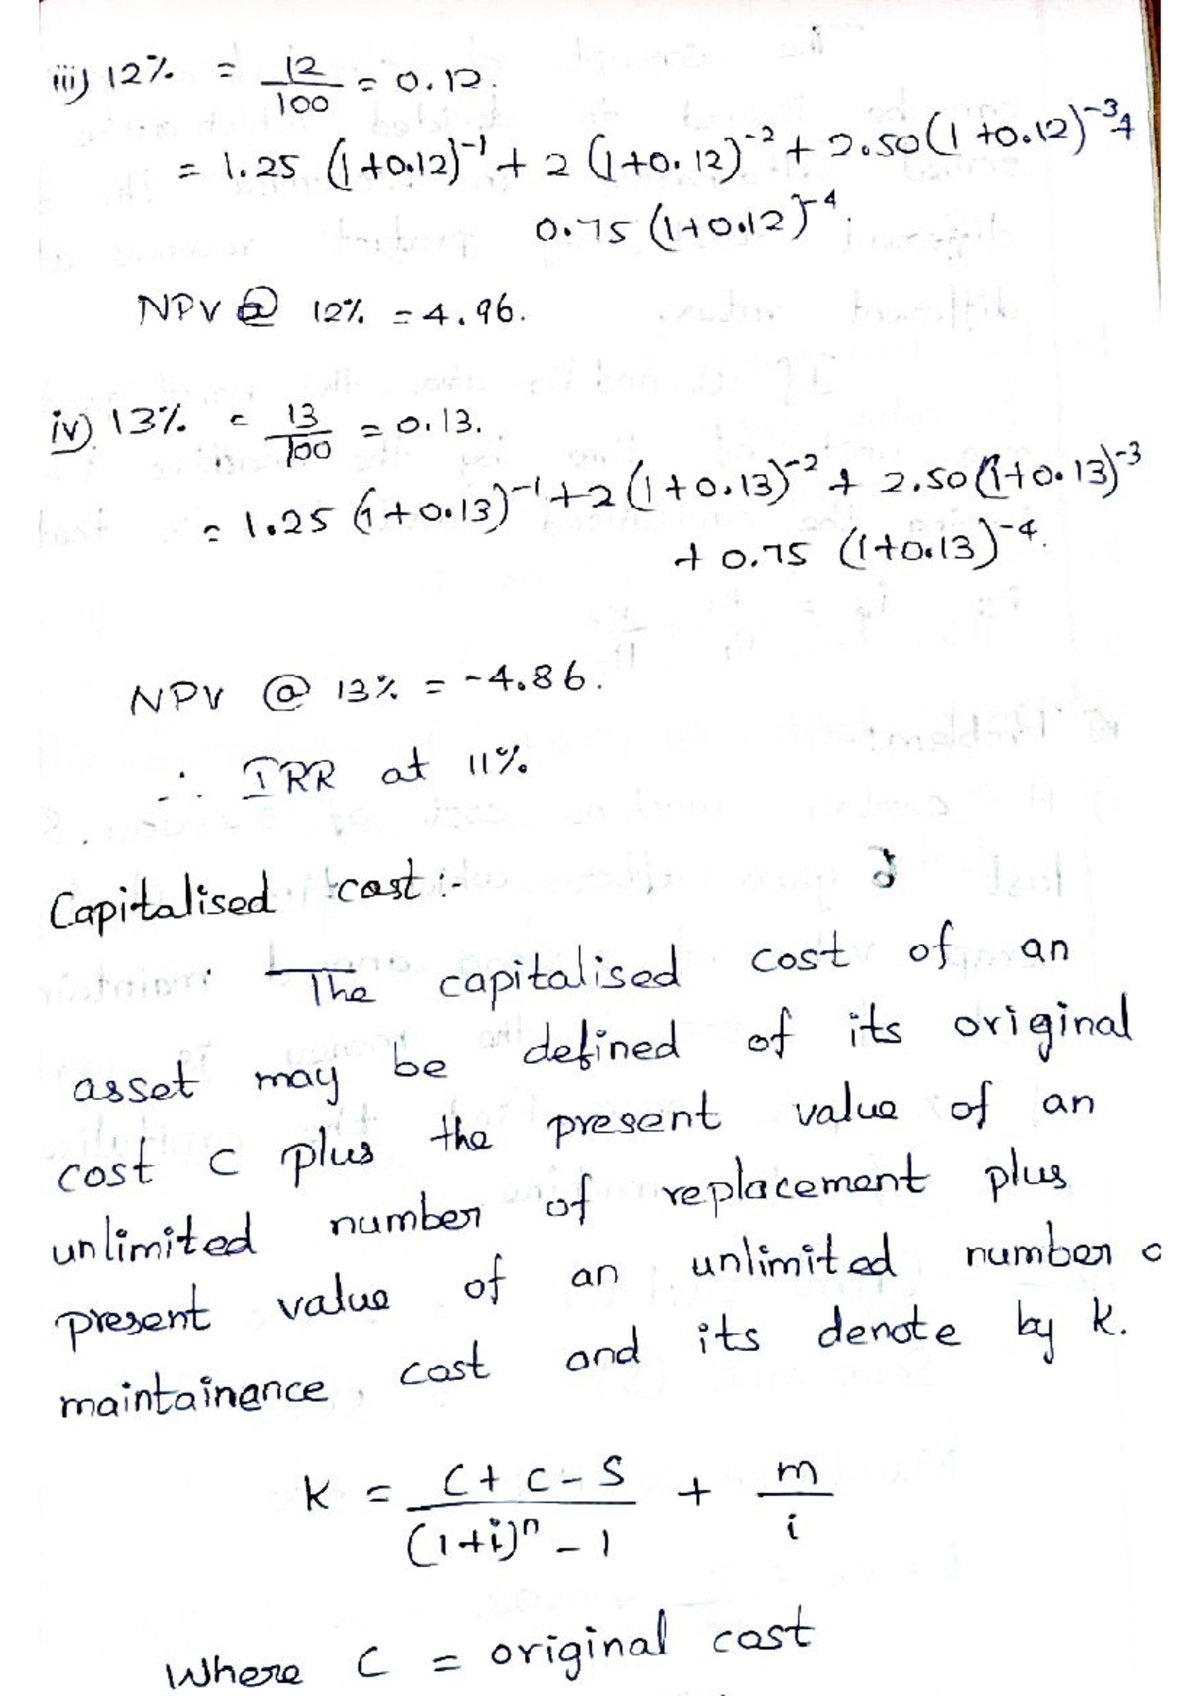 iii) 12% = 12/100 = 0.12.
= 1.25 (1+0.12)^-1 + 2 (1+0.12)^-2 + 2.50 (1+0.12)^-3 +
0.75 (1+0.12)^-4.
NPV @ 12% = 4.96.
iv) 13% = 13/100 = 0.13.
= 1.25 (1+0.13)^-1 + 2 (1+0.13)^-2 + 2.50 (1+0.13)^-3
+ 0.75 (1+0.13)^-4.
NPV @ 13% = -4.86.
∴ IRR at 11%
Capitalised cost :-
The capitalised cost of an
asset may be defined of its original
cost C plus the present value of an
unlimited number of replacement plus
present value of an unlimited number o
maintainance cost and its denote by k.
k = C + C - S / (1+i)^n - 1 + m/i
Where C = original cost